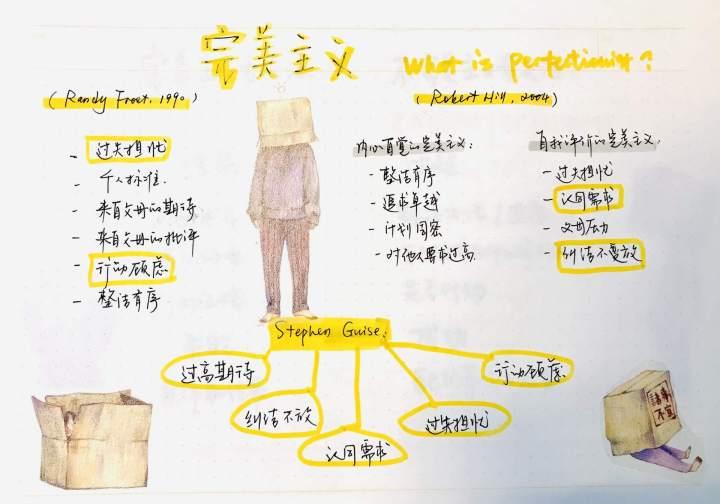 完美主义 What is perfectionist?
(Randy Frost, 1990)
- 过失担忧
- 个人标准.
- 来自父母的期待
- 来自父母的批评
- 行动顾虑
- 整洁有序
(Robert Hill, 2004)
内心自觉的完美主义:
- 整洁有序
- 追求卓越
- 计划周密
- 对他人要求过高
自我评价的完美主义:
- 过失担忧
- 认同需求
- 父母压力
- 纠结不愿放
Stephen Guise:
过高期待
纠结不放
认同需求
过失担忧
行动顾虑
諸事不宜